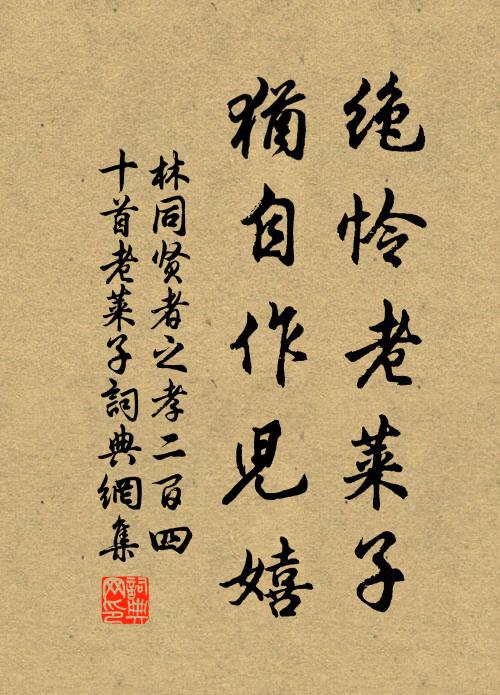 绝怜老莱子
犹自作児嬉
林同贤者之孝二百四
十首老莱子詞典網集
詞典网印